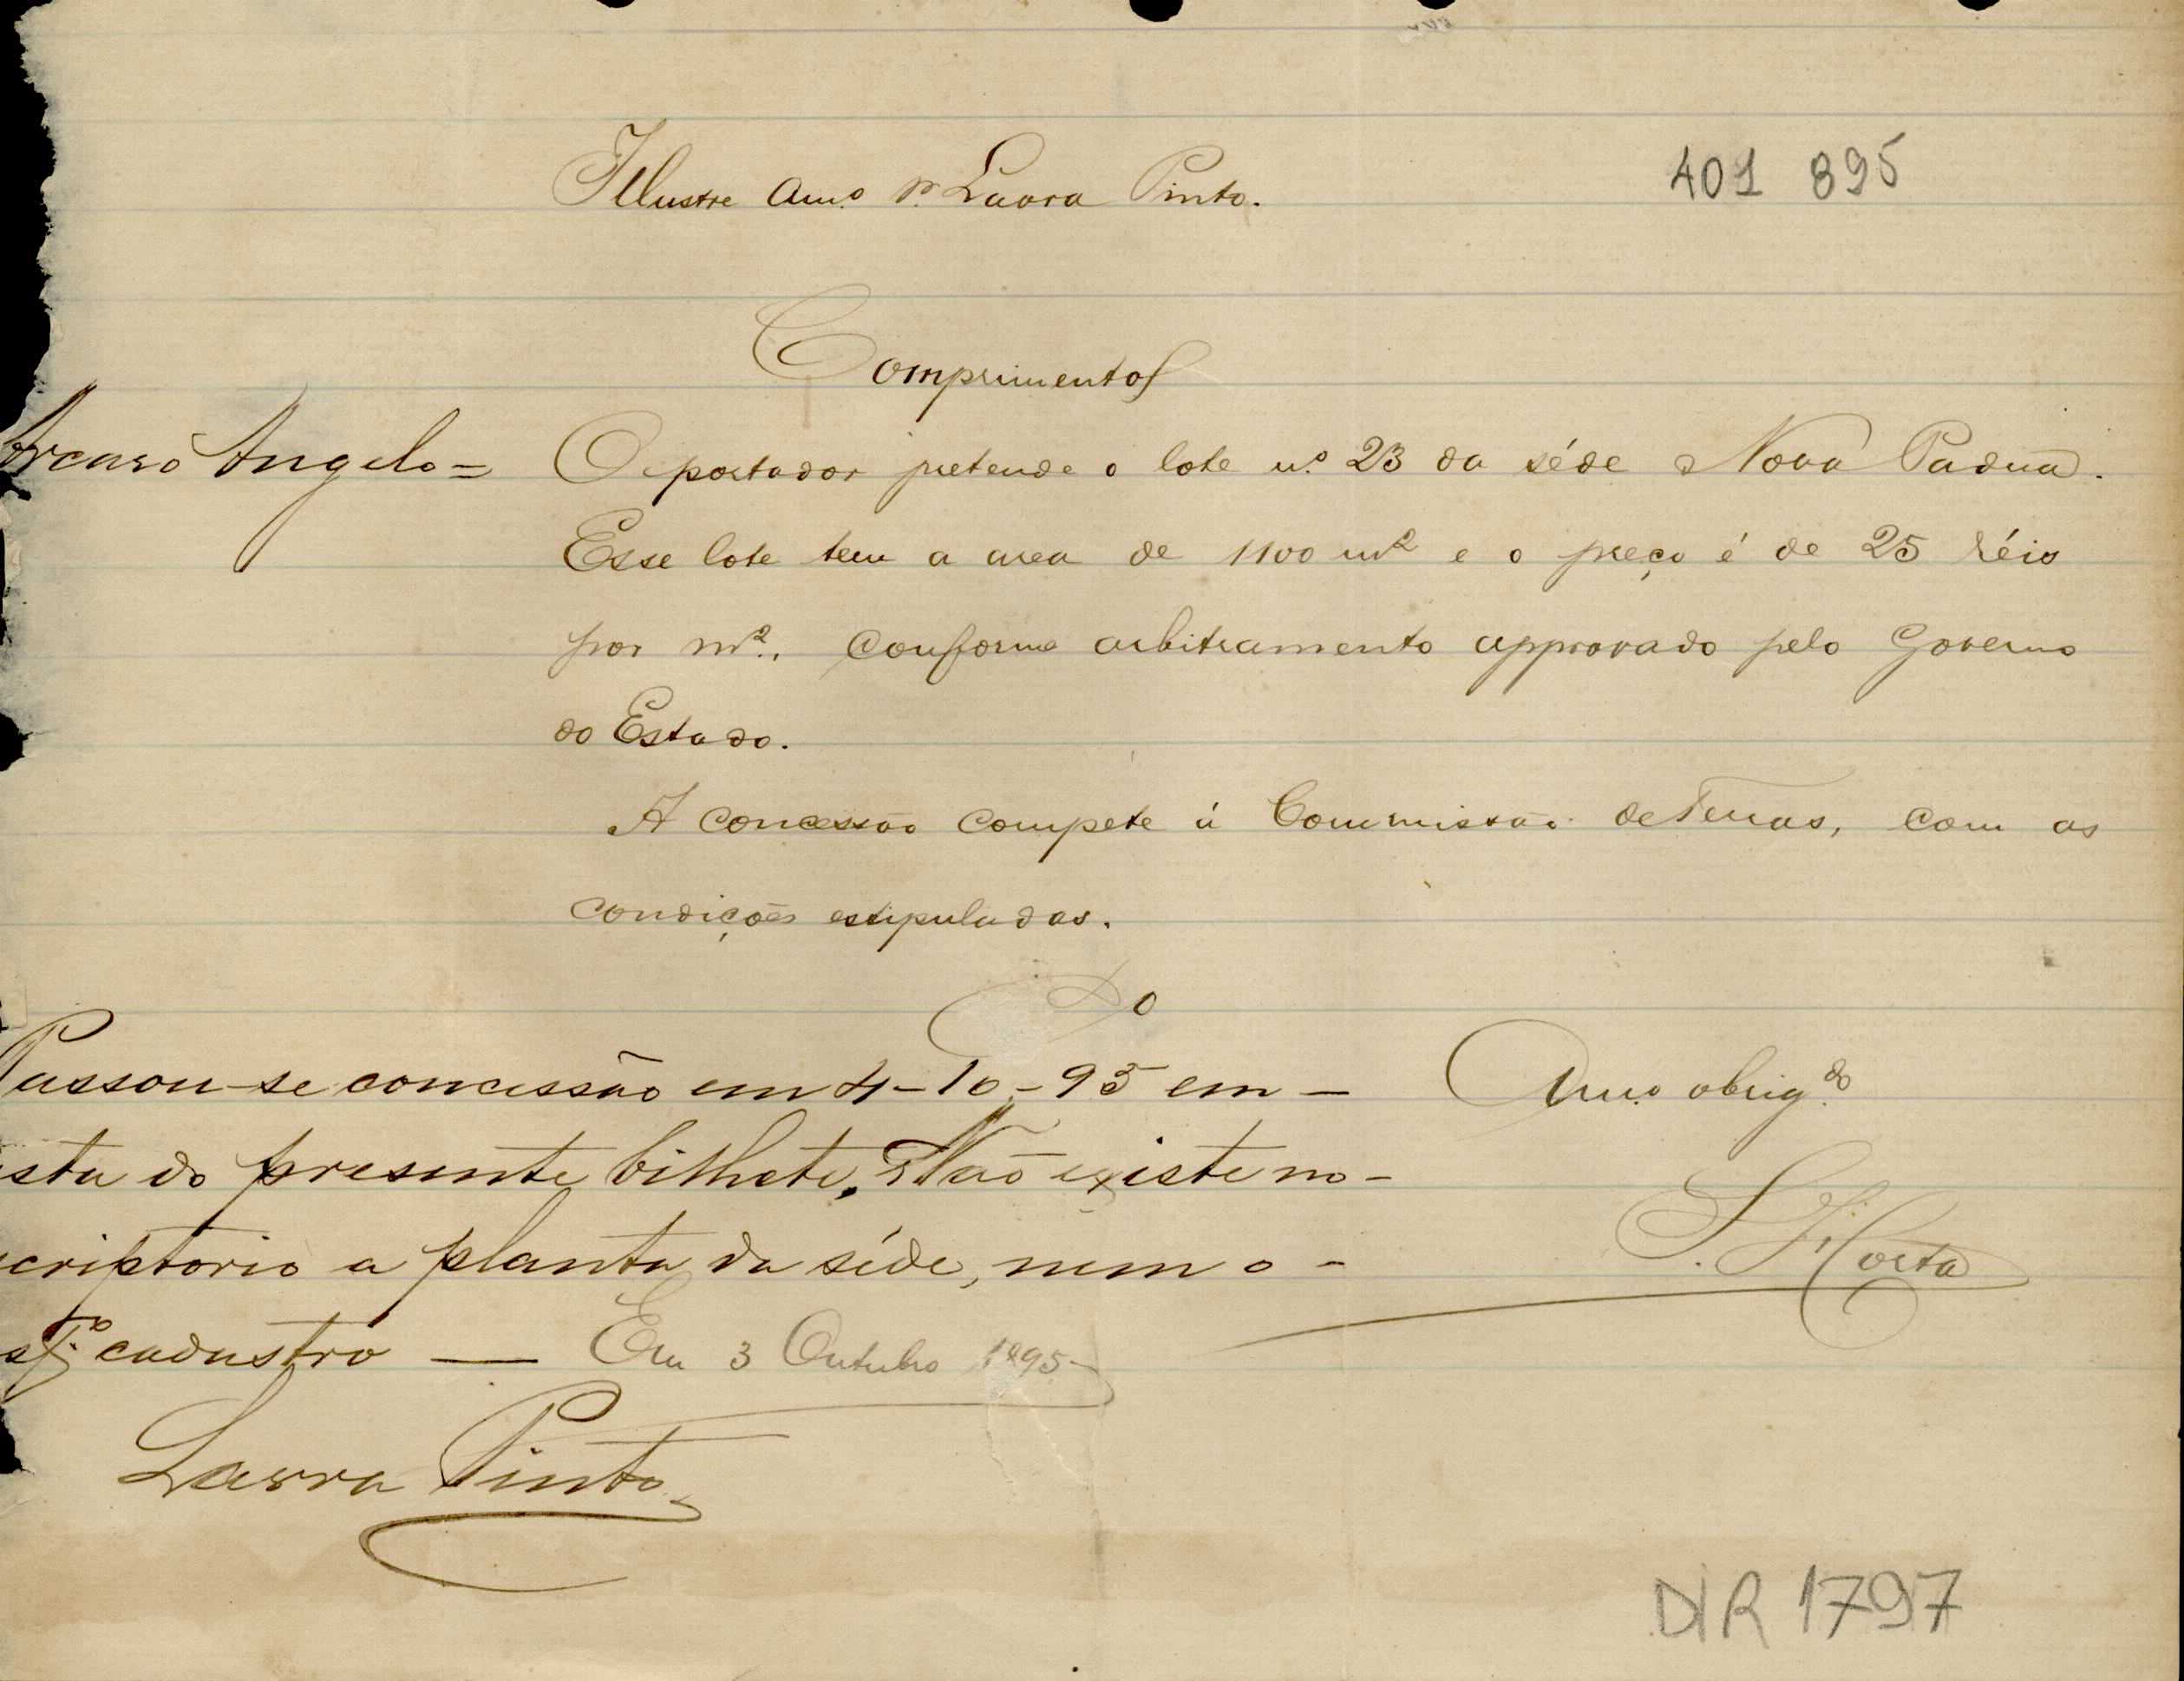 Illustre Amo. Sr. Lavra Pinto.
401 895
Comprimentos
Arcaro Angelo =
O portador pretende o lote n.o 23 da séde Nova Padua.
Esse lote tem a area de 1100 m2 e o preço é de 25 réis
por m2., conforme arbitramento approvado pelo Governo
do Estado.
A concessão compete á Commissão de Terras, com as
condições estipuladas.
Do
Amo. obrigdo.
Horta
Passou-se concessão em 4-10-95 em -
ista do presente bilhete. Não existe no -
criptorio a planta da séde, nem o -
cadastro — Em 3 Outubro 1895
Lavra Pinto
DIR 1797